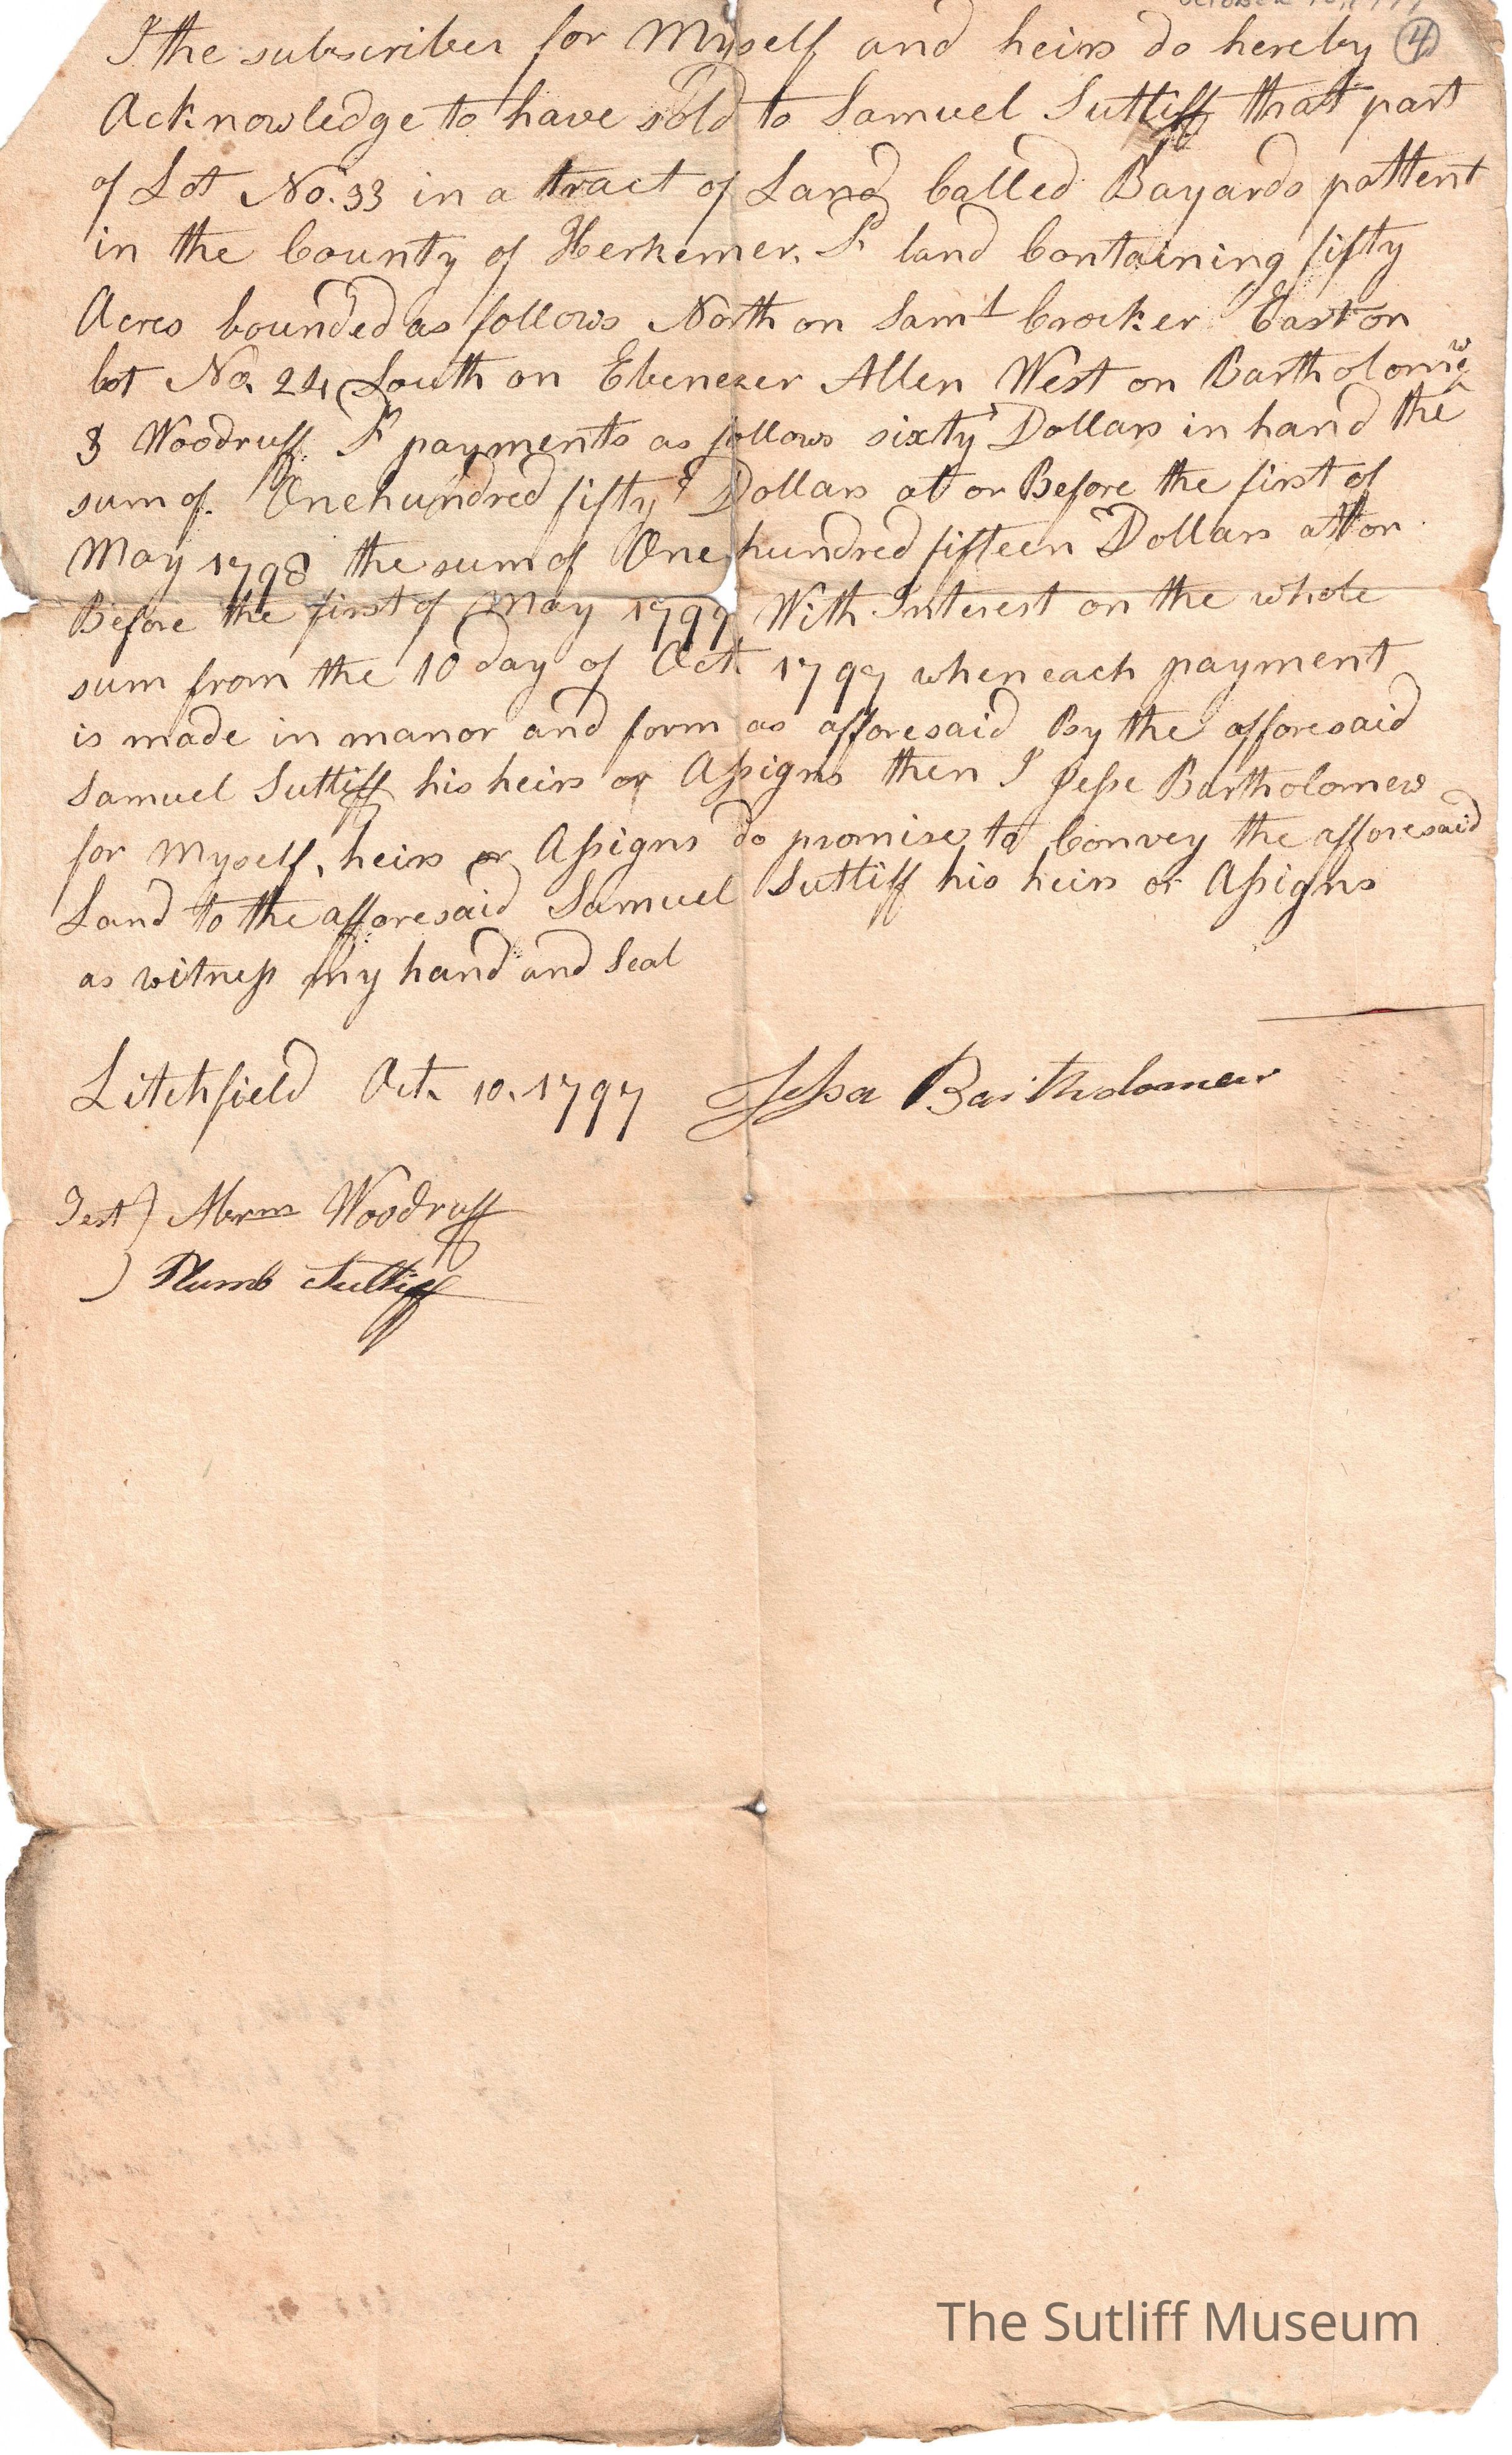 October 10, 1797
④
I the subscriber for Myself and heirs do hereby
Acknowledge to have sold to Samuel Sutliff that part
of Lot No. 33 in a tract of Land Called Bayards pattent
in the County of Herkemer. Sd land Containing fifty
Acres bounded as follows North on Saml Crocker East on
Lot No. 24 South on Ebenezer Allen West on Bartholomew
& Woodruff. Sd payments as follows sixty Dollars in hand the
sum of One hundred fifty Dollars at or Before the first of
May 1798 the sum of One hundred fifteen Dollars att or
Before the first of May 1799 With Interest on the whole
sum from the 10 day of Oct. 1797 when each payment
is made in manor and form as afforesaid By the afforesaid
Samuel Sutliff his heirs or Assigns then I Jesse Bartholomew
for Myself, heirs or Assigns do promise to Convey the afforesaid
Land to the afforesaid Samuel Sutliff his heirs or Assigns
as witness my hand and Seal
Litchfield Oct. 10. 1797 Jessa Bartholomew
Test) Woodruff
) Plumb Sutliff
The Sutliff Museum